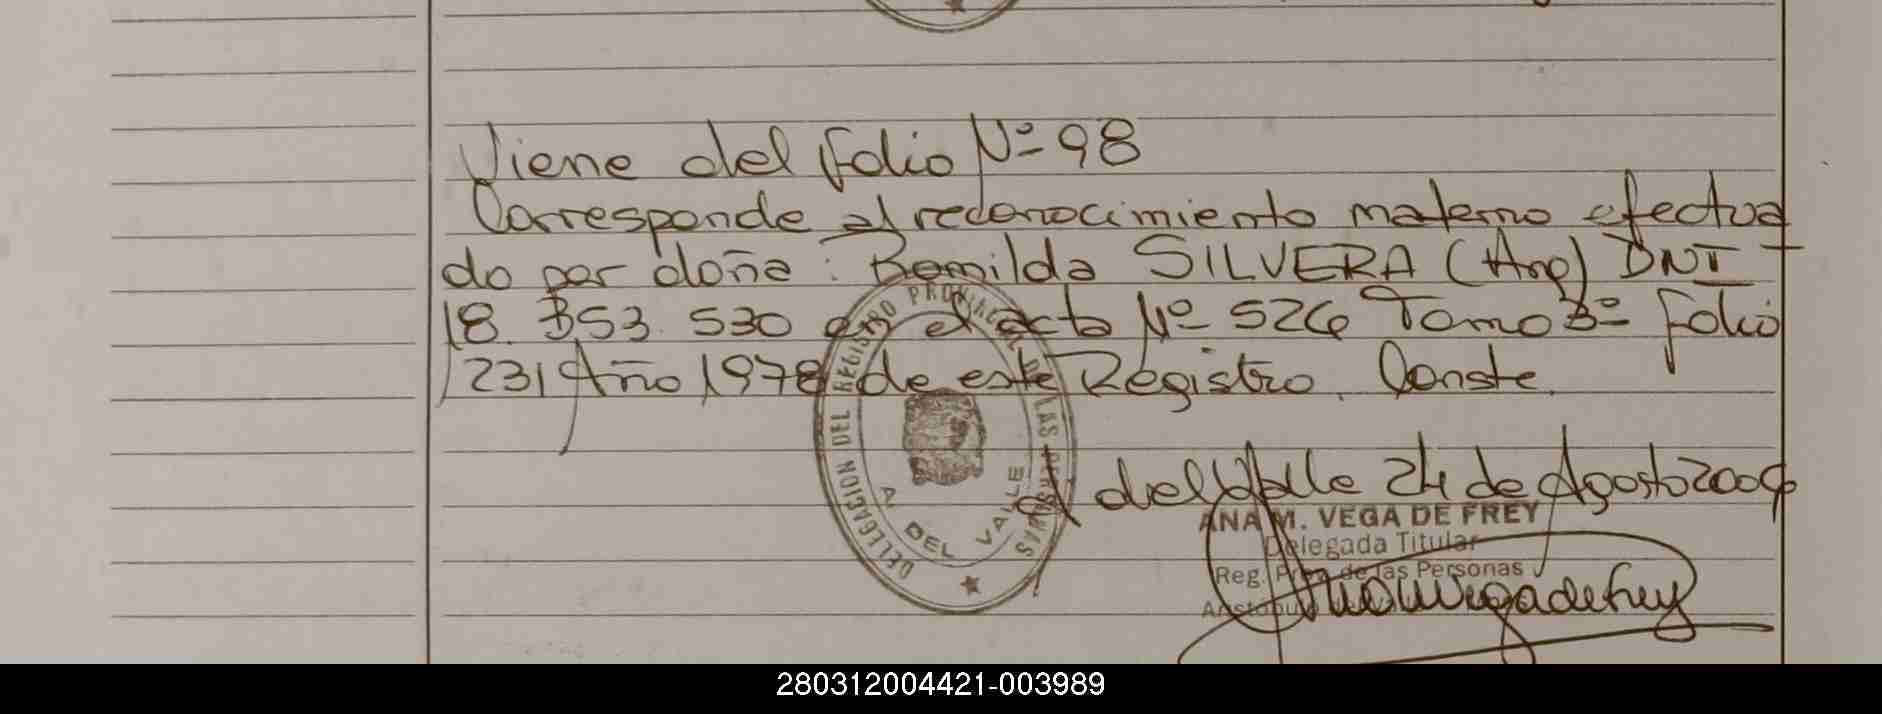 Viene del folio Nº 98
Corresponde al reconocimiento materno efectua
do por doña: Romilda SILVERA (Arg) DNI
18. 853. 530 en el acta Nº 526 Tomo 3º folio
231 Año 1978 de este Registro. Conste.
A del Valle 24 de Agosto 2006
ANA M. VEGA DE FREY
Delegada Titular
Reg. Prov. de las Personas
Aristóbulo
Ana M Vega de Frey
DELEGACION DEL REGISTRO PROVINCIAL DE LAS PERSONAS
A DEL VALLE
280312004421-003989